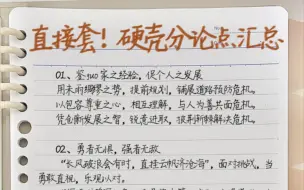 直接套！硬壳分论点汇总
01、鉴百家之经验，促个人之发展
用未雨绸缪之势，提前规划，铺展道路预防危机。
以包容尊重之心，相互理解，与人为善共面危机。
凭创新发展之智，锐意进取，披荆斩棘解决危机。
02、勇者无惧，强者无敌
“长风破浪会有时，直挂云帆济沧海”，面对挑战，当
勇敢直视，乐观以对。